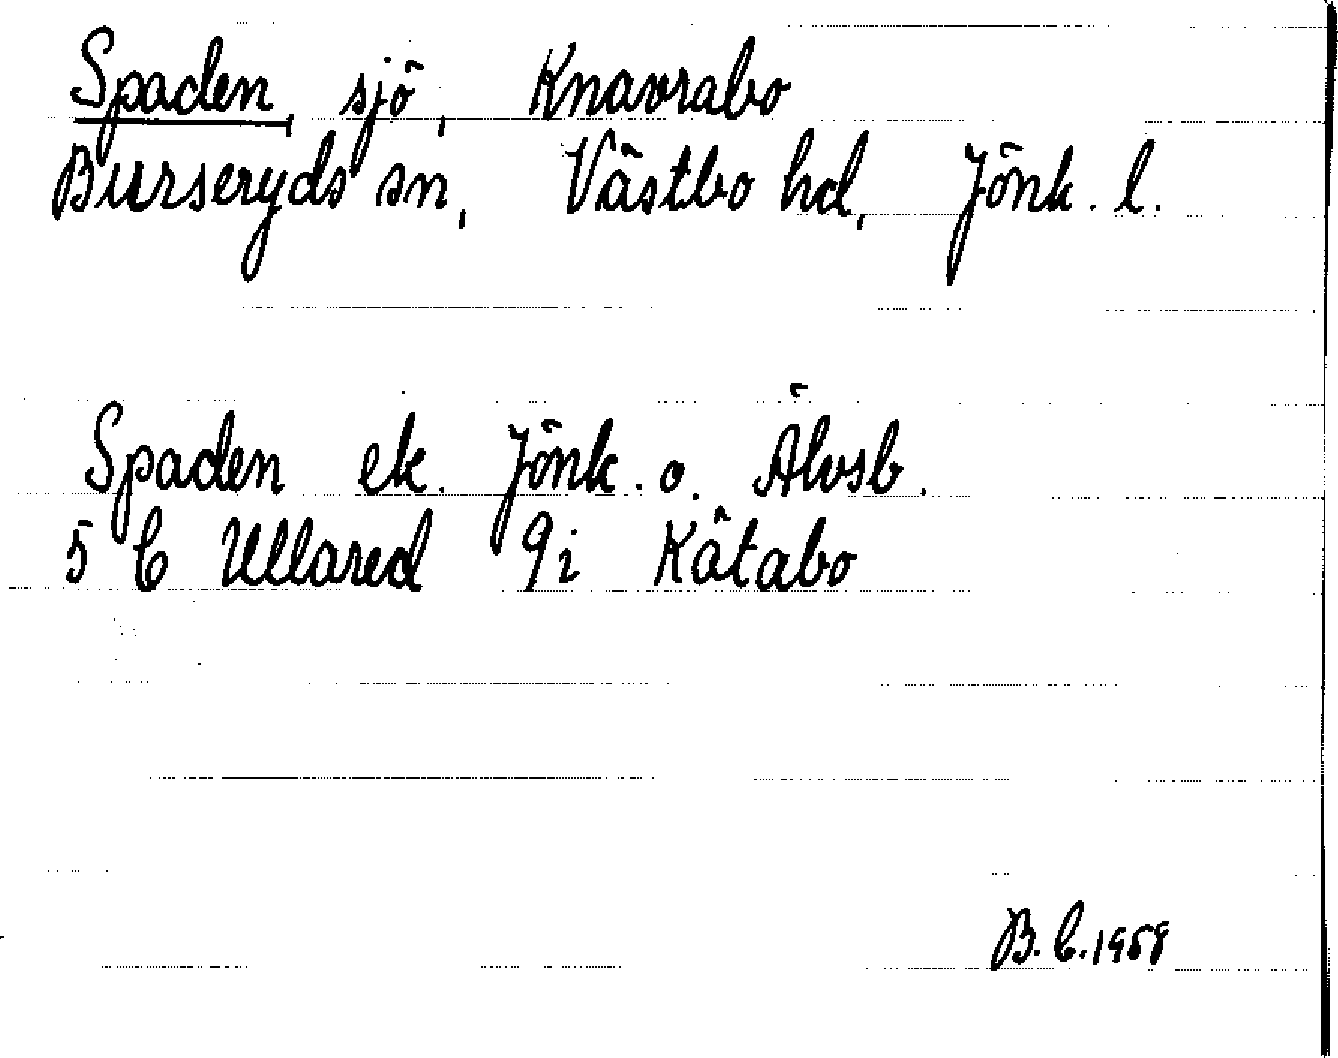 Spaden, sjö, Knavrabo
Burseryds sn, Västbo hd, Jönk. l.
Spaden ek. Jönk. o. Älvsb.
5 C Ullared 9i Kåtabo
B. C. 1958